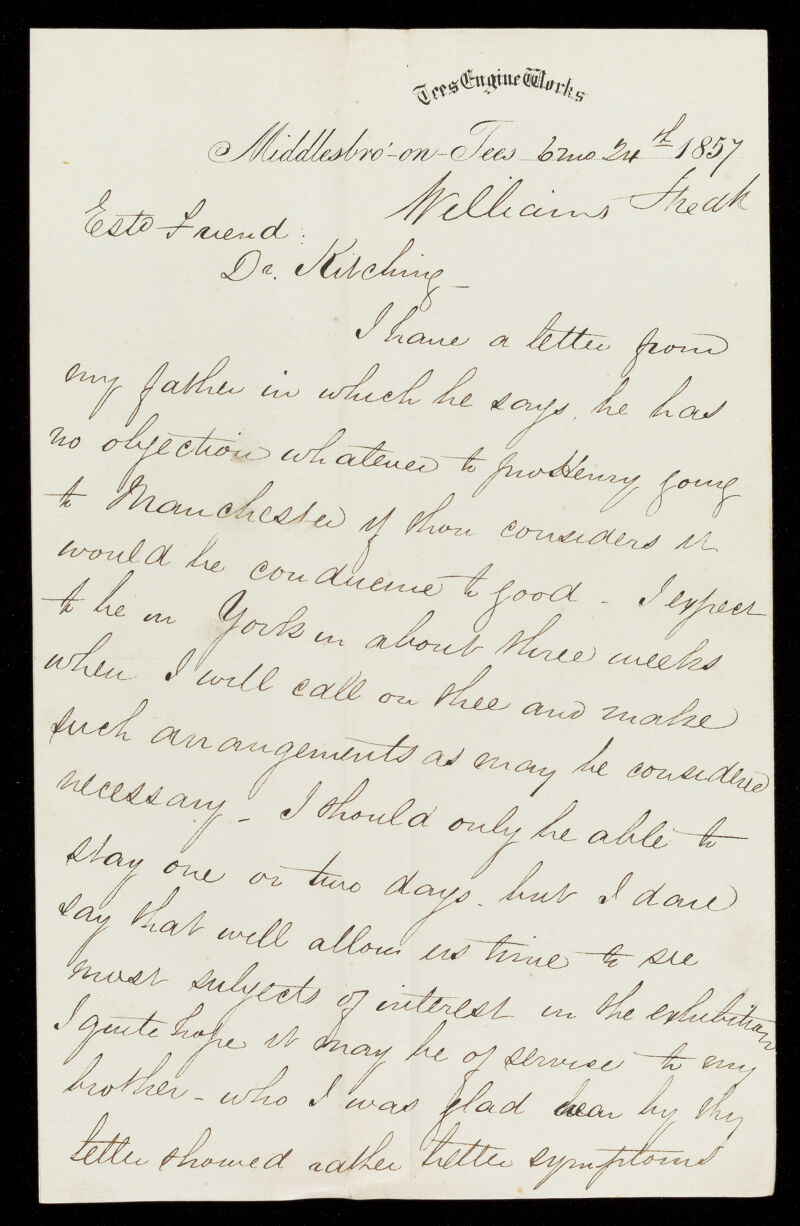 Tees Engine Works
Middlesbro'-on-Tees 6 mo 24th 1857
Williams Fredk
Estd Friend
Dr. Kitching
I have a letter from
my father in which he says he has
no objection whatever to Henry going
to Manchester if thou considers it
would be conducive to good - I expect
to be in York in about three weeks
when I will call on thee and make
such arrangements as may be considered
necessary - I should only be able to
stay one or two days. but I dare
say that will allow us time to see
most subjects of interest in the exhibition
I quite hope it may be of service to my
brother - who I was glad hear by thy
letter showed rather better symptoms